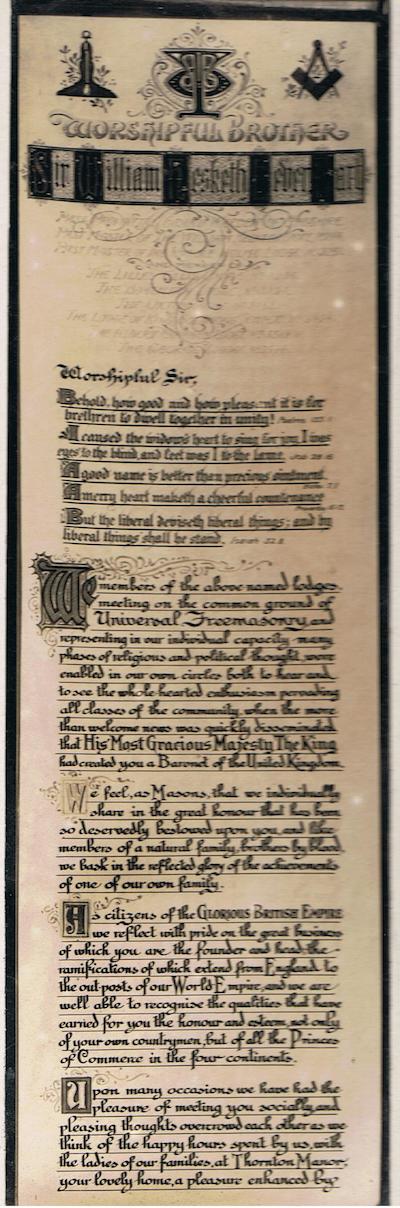 WORSHIPFUL BROTHER
Sir William Hesketh Lever Bart
Worshipful Sir,
Behold, how good and how pleasant it is for
brethren to dwell together in unity!
I caused the widow's heart to sing for joy, I was
eyes to the blind, and feet was I to the lame.
A good name is better than precious ointment.
A merry heart maketh a cheerful countenance
But the liberal deviseth liberal things; and by
liberal things shall he stand. Isaiah 32.8
We members of the above named lodges,
meeting on the common ground of
Universal Freemasonry, and
representing in our individual capacity many
phases of religious and political thought, were
enabled in our own circles both to hear and
to see the whole-hearted enthusiasm pervading
all classes of the community, when the more
than welcome news was quickly disseminated
that His Most Gracious Majesty The King
had created you a Baronet of the United Kingdom.
We feel, as Masons, that we individually
share in the great honour that has been
so deservedly bestowed upon you, and like
members of a natural family, brothers by blood,
we bask in the reflected glory of the achievements
of one of our own family.
As citizens of the GLORIOUS BRITISH EMPIRE
we reflect with pride on the great business
of which you are the founder and head, the
ramifications of which extend from England to
the outposts of our World Empire, and we are
well able to recognise the qualities that have
earned for you the honour and esteem, not only
of your own countrymen, but of all the Princes
of Commerce in the four continents.
Upon many occasions we have had the
pleasure of meeting you socially, and
pleasing thoughts overcrowd each other as we
think of the happy hours spent by us, with
the ladies of our families, at Thornton Manor,
your lovely home, a pleasure enhanced by